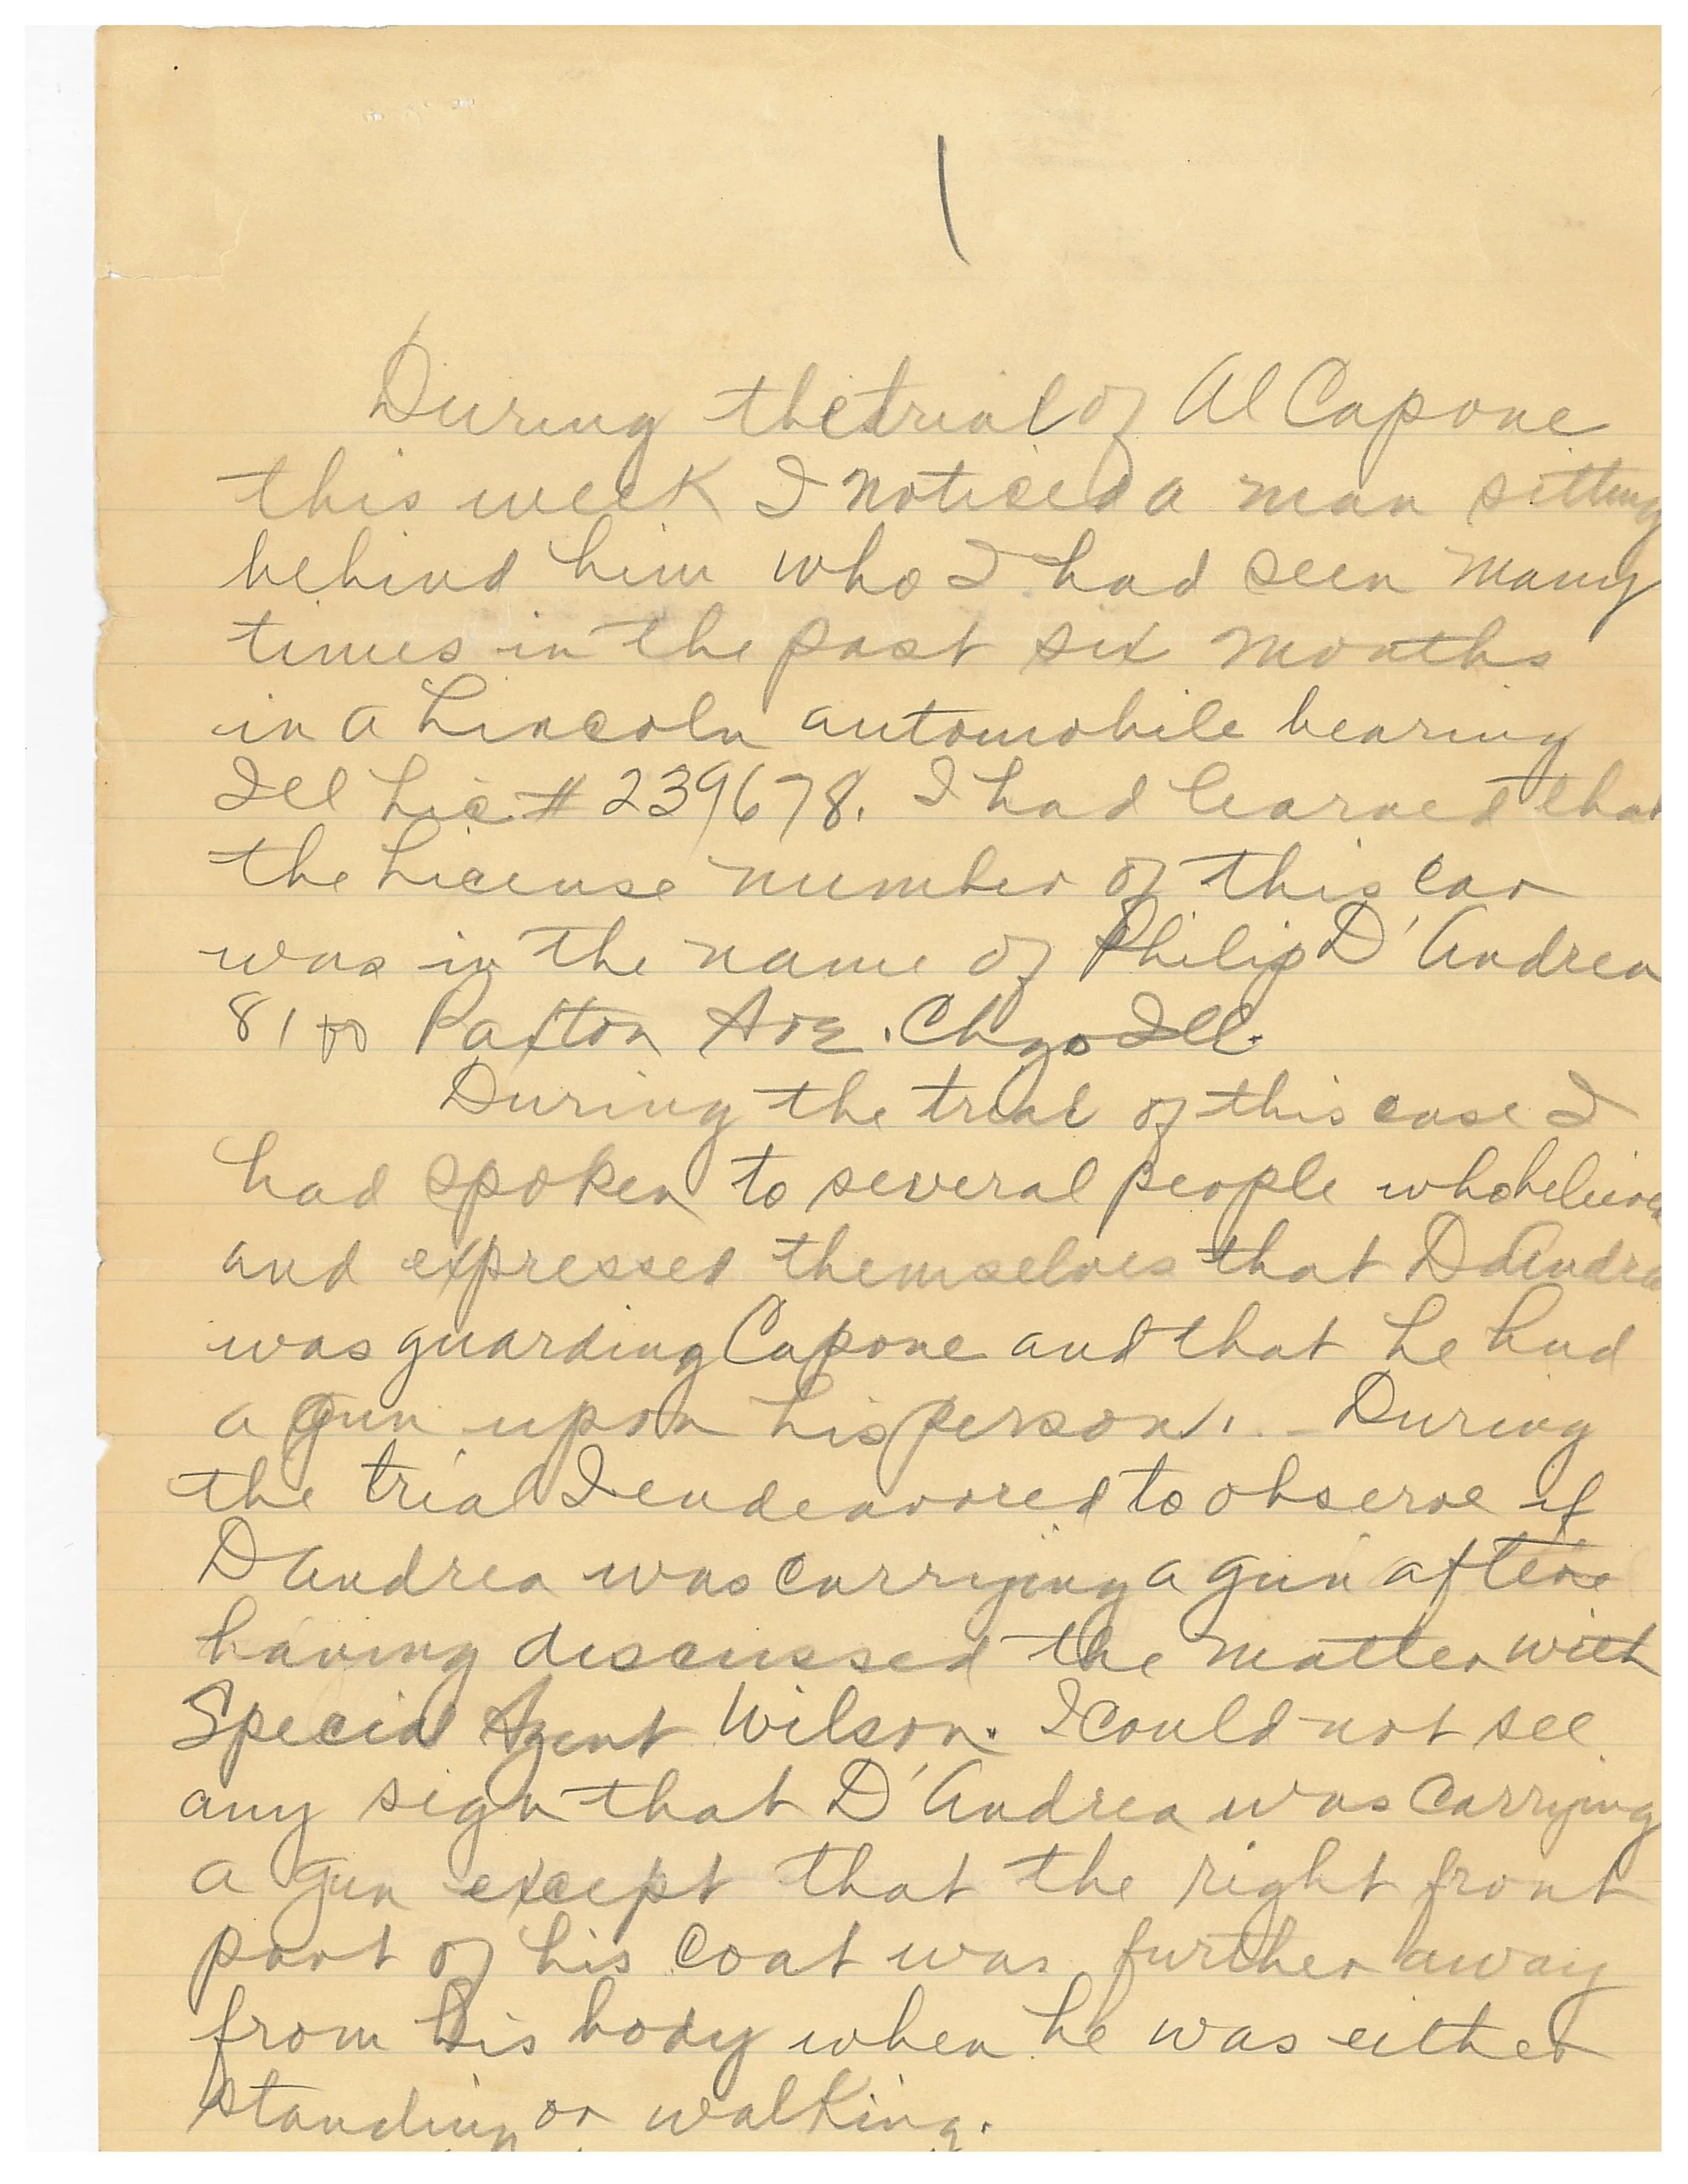 1
During the trial of Al Capone
this week I noticed a man sitting
behind him who I had seen many
times in the past six months
in a Lincoln automobile bearing
Ill Lic # 239678. I had learned that
the License number of this car
was in the name of Philip D'Andrea
8100 Paxton Ave. Chgo Ill.
During the trial of this case I
had spoken to several people who believed
and expressed themselves that DAndrea
was guarding Capone and that he had
a gun upon his person. - During
the trial I endeavored to observe if
DAndrea was carrying a gun after
having discussed the matter with
Special Agent Wilson. I could not see
any sign that D'Andrea was carrying
a gun except that the right front
part of his coat was further away
from his body when he was either
standing or walking.